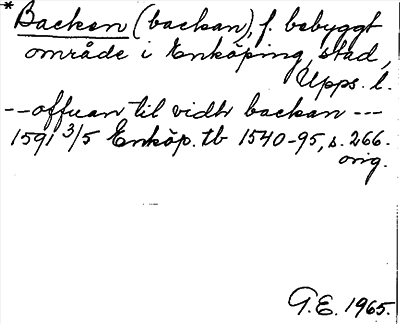 * Backen (backan), f. bebyggt
område i Enköping, stad,
Upps. l.
-- offuan til vidh backan ---
1591 3/5 Enköp. tb 1540-95, s. 266.
orig.
G.E. 1965.